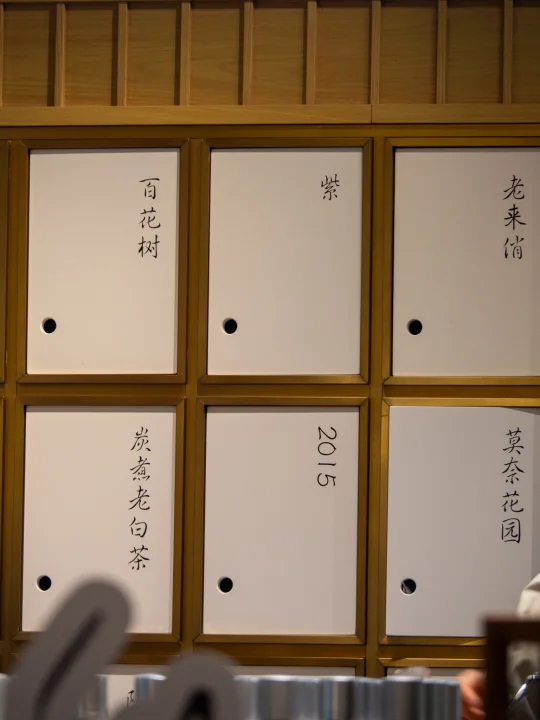 百花树
紫
老来俏
炭煮老白茶
2015
莫奈花园